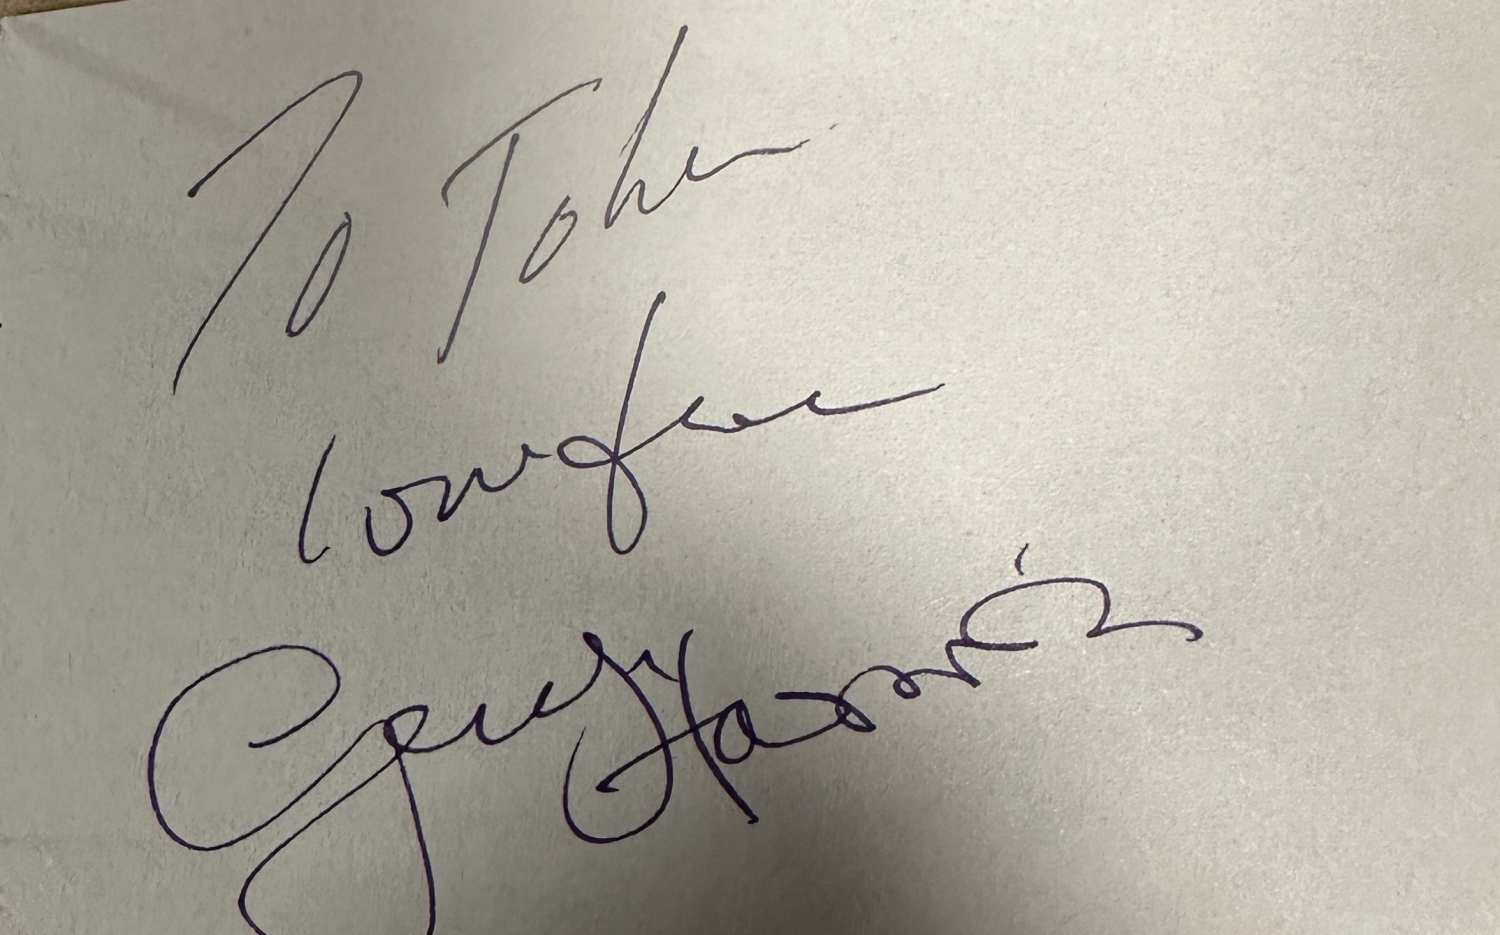 To John
love from
George Harrison